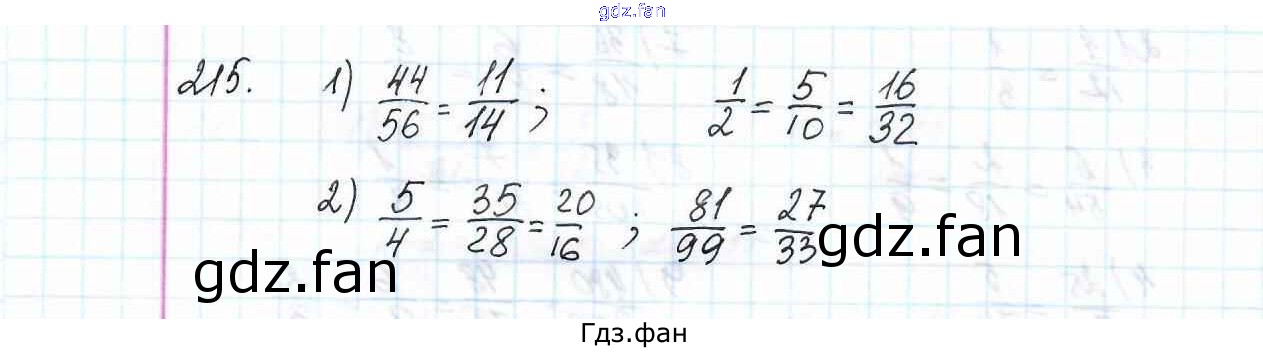 gdz.fan
215. 1) 44/56 = 11/14 ; 1/2 = 5/10 = 16/32
2) 5/4 = 35/28 = 20/16 ; 81/99 = 27/33
gdz.fan
gdz.fan
Гдз.фан